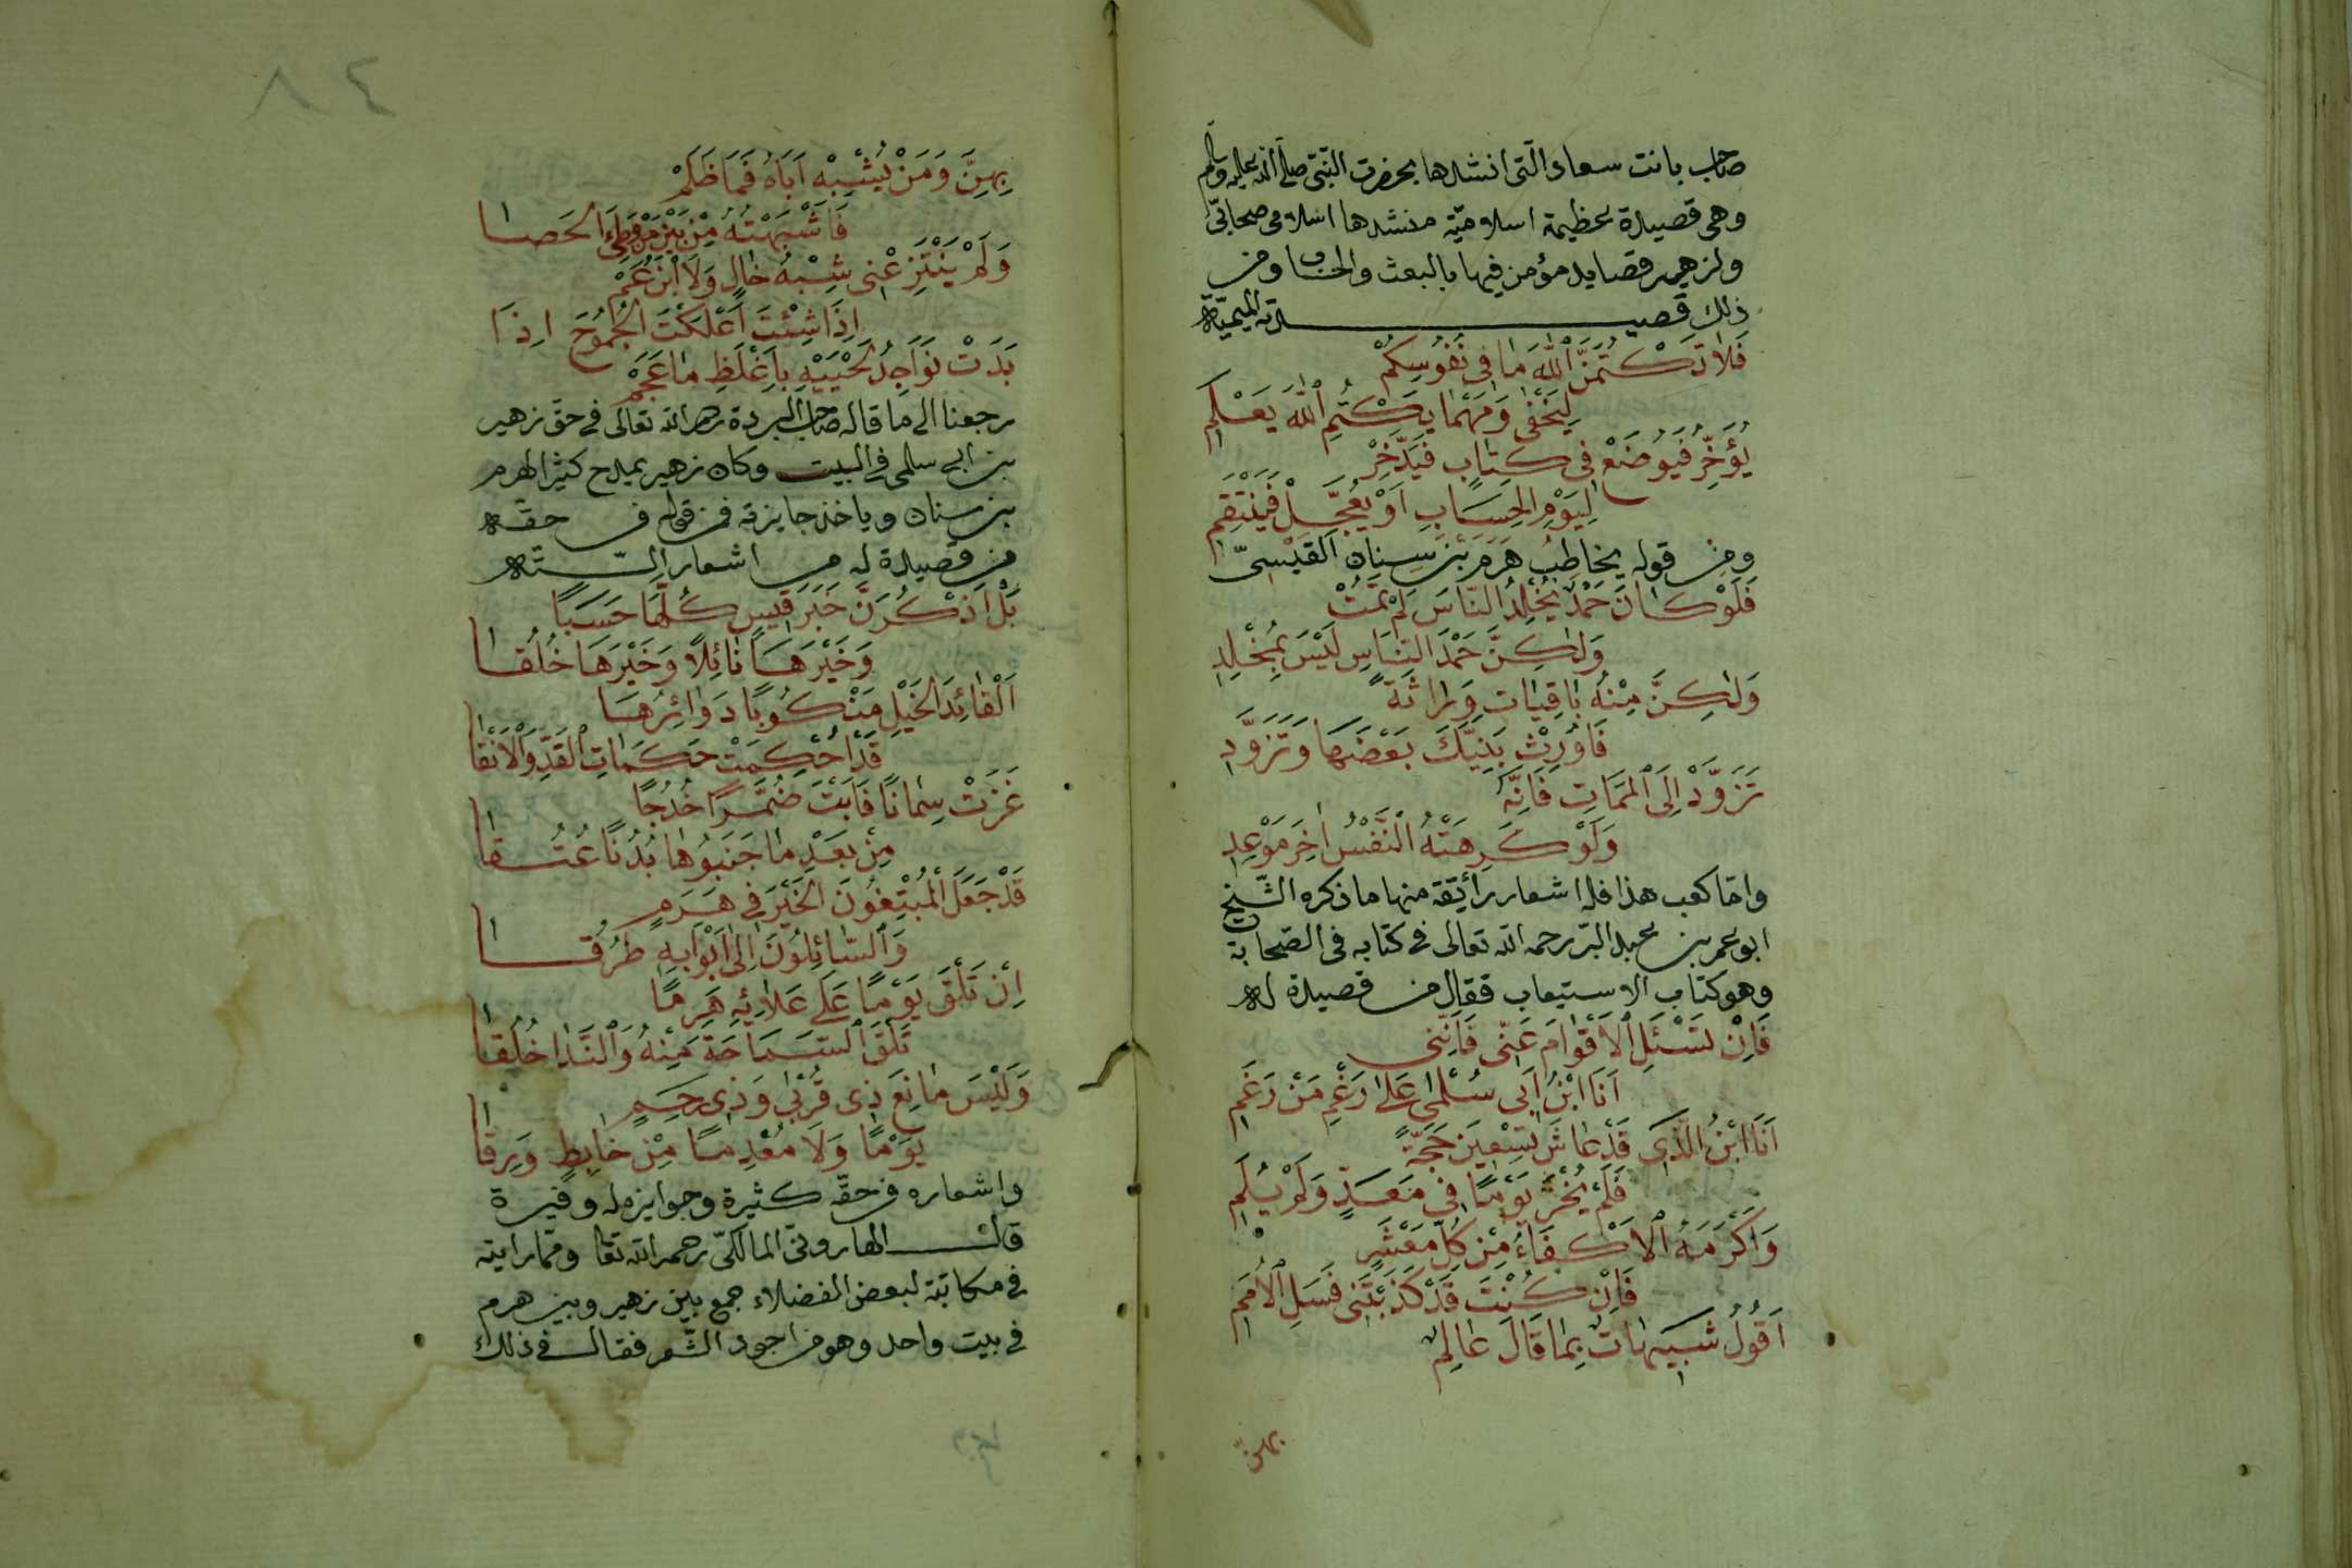 صاحب بانت سعاد الّتى انشدها بحضرت النّبىّ صلّى الله عليه وسلّم
وهى قصيدة عظيمة اسلاميّة منشدها اسلامى صحابىّ
ولزهير قصايد مؤمن فيها بالبعث والحساب ومن
ذلك قصيدته الميميّة
فَلَا تَكْتُمَنَّ اللّٰهَ مَا فِى نُفُوسِكُمْ
لِيَخْفَى وَمَهْمَا يَكْتُمِ اللّٰهَ يَعْلَمِ
يُؤَخِّرْ فَيُوضَعْ فِى كِتَابٍ فَيَدَّخِرْ
لِيَوْمِ الحِسَابِ اَوْ يُعَجِّلْ فَيَنْتَقِمِ
ومن قوله يخاطب هَرَم بن سِنان القَيْسىّ
فَلَوْ كَانَ حَمْدٌ يُخْلِدُ النَّاسَ لَمْ تَمُتْ
وَلٰكِنَّ حَمْدَ النَّاسِ لَيْسَ بِمُخْلِدِ
وَلٰكِنَّ مِنْهُ بَاقِيَاتٍ وِرَاثَةً
فَاَوْرِثْ بَنِيكَ بَعْضَهَا وَتَزَوَّدِ
تَزَوَّدْ اِلَى المَمَاتِ فَاِنَّهُ
وَلَوْ كَرِهَتْهُ النَّفْسُ اٰخِرُ مَوْعِدِ
وامّا كعب هذا فله اشعار رائقة منها ما ذكره الشّيخ
ابو عمر بن عبد البّر رحمه الله تعالى فى كتابه فى الصّحابة
وهو كتاب الاستيعاب فقال من قصيدة له
فَاِنْ تَسْئَلِ الْاَقْوَامَ عَنّى فَاِنَّنى
اَنَا ابْنُ اَبى سُلْمٰى عَلٰى رَغْمِ مَنْ رَغَمِ
اَنَا ابْنُ الَّذِى قَدْ عَاشَ تِسْعِينَ حَجَّةً
فَلَمْ يُخْزَ يَوْمًا فِى مَعَدٍّ وَلَمْ يُلَمِ
وَاَكْرَمَهُ الْاَكْفَاءُ مِنْ كُلِّ مَعْشَرٍ
فَاِنْ كُنْتَ قَدْ كَذَّبْتَنِى فَسَلِ الْاُمَمِ
اَقُولُ شَبِيهَاتٌ بِمَا قَالَ عَالِمٌ
بهنّ
٨٤
بِهِنَّ وَمَنْ يُشْبِهْ اَبَاهُ فَمَا ظَلَمْ
فَاَشْبَهْتُهُ مِنْ بَيْنِ مَنْ وَطِئَ الحَصَا
وَلَمْ يَنْتَزِعْنِى شِبْهُ خَالٍ وَلَا ابْنُ عَمْ
اِذَا شِئْتَ اَعْلَكْتَ الْجُمُوحَ اِذَا
بَدَتْ نَوَاجِدُ لَحْيَيْهِ بِاَغْلَظِ مَا عَجَمْ
رجعنا الى ما قاله صاحب البردة رحمه الله تعالى فى حقّ زهير
بن ابى سلمى فى البيت وكان زهير يمدح كثيرا لهرم
بن سنان وياخذ جايزته فمن قوله فى حقه
من قصيدة له من اشعار السّتّة
بَلْ اَذْكُرَنَّ خَيْرَ قَيْسٍ كُلِّهَا حَسَبًا
وَخَيْرَهَا نَائِلًا وَخَيْرَهَا خُلُقَا
اَلْقَائِدَ الْخَيْلِ مَنْكُوبًا دَوَائِرُهَا
قَدْ اُحْكِمَتْ حَكَمَاتِ الْقَدِّ وَالْاَنَقَا
غَزَتْ سِمَانًا فَاَبَتْ ضُمَّرًا خُدُجًا
مِنْ بَعْدِ مَا جَنَبُوهَا بُدُنًا عُتُقَا
قَدْ جَعَلَ الْمُبْتِغُونَ الْخَيْرَ فِى هَرَمٍ
وَالسَّائِلُونَ اِلٰى اَبْوَابِهِ طُرُقَا
اِنْ تَلْقَ يَوْمًا عَلَى عَلَائِهِ هَرِمًا
تَلْقَ السَّمَاحَةَ مِنْهُ وَالنَّدَا خُلُقَا
وَلَيْسَ مَانِعَ ذِى قُرْبٰى وَذِى رَحِمٍ
يَوْمًا وَلَا مُعْدِمًا مِنْ خَابِطٍ وَرِقَا
واشعاره فى حقّه كثيرة وجوايزه له وفيرة
قال الهارونىّ المالكىّ رحمه الله تعا وممّا رايته
فى مكاتبة لبعض الفضلاء جمع بين زهير وبين هرم
فى بيت واحد وهو من اجود الشّعر فقال فى ذلك